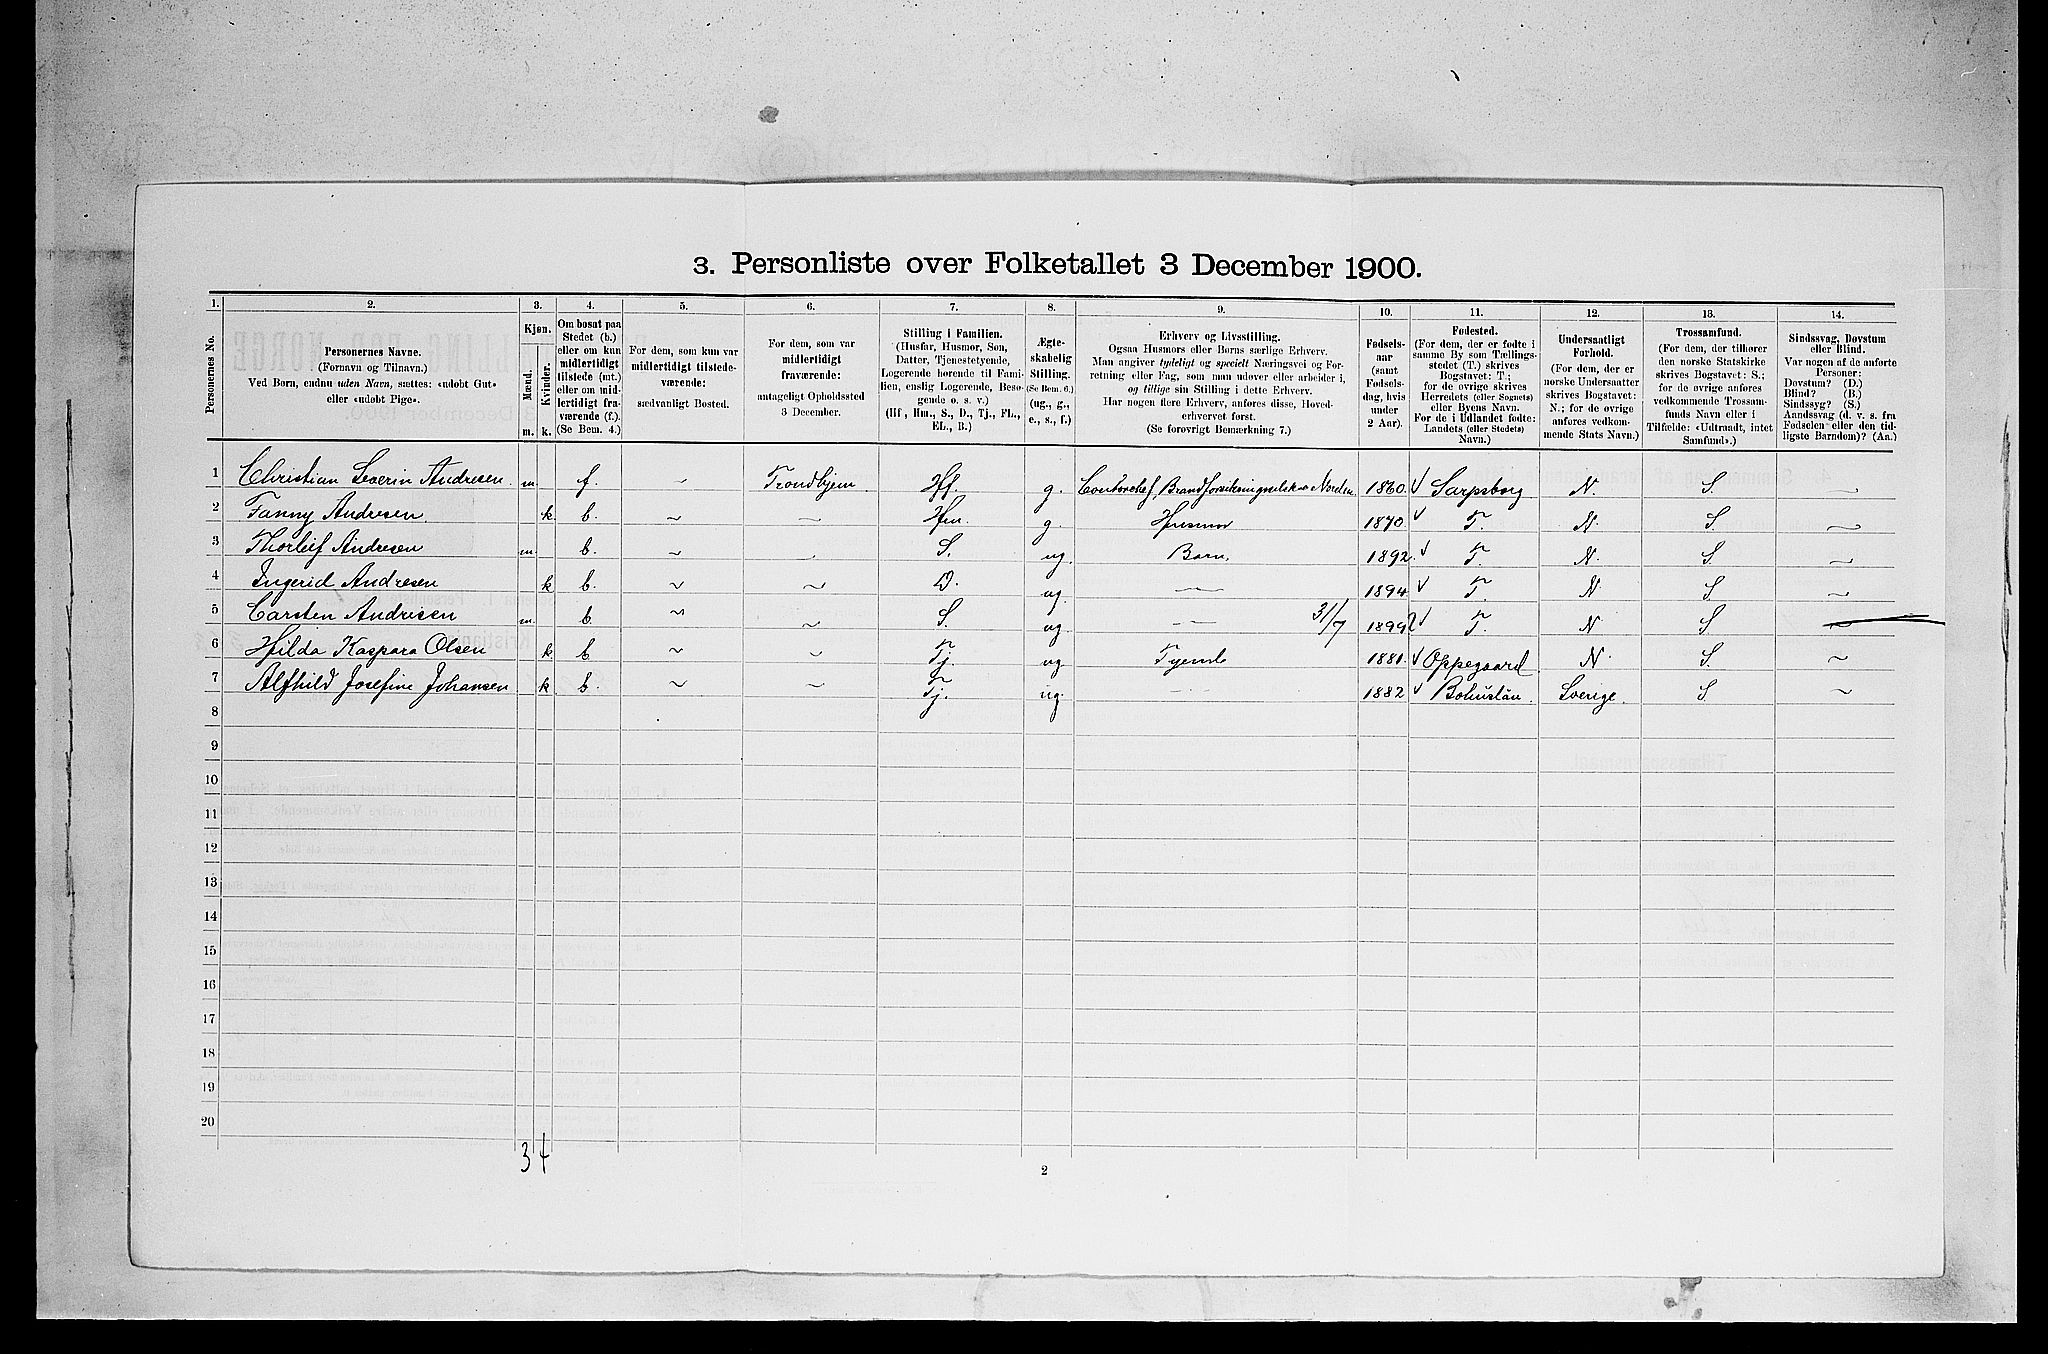 3. Personliste over Folketallet 3 December 1900.
1. 2. 3. 4. 5. 6. 7. 8. 9. 10. 11. 12. 13. 14.
Personernes No.
Personernes Navne.
(Fornavn og Tilnavn.)
Ved Børn, endnu uden Navn, sættes: «udøbt Gut»
eller «udøbt Pige».
Kjøn.
Mænd.
Kvinder.
m. k.
Om bosat paa
Stedet (b.)
eller om kun
midlertidigt
tilstede (mt.)
eller om mid-
lertidigt fra-
værende (f.).
(Se Bem. 4.)
For dem, som kun var
midlertidigt tilstede-
værende:
sædvanligt Bosted.
For dem, som var
midlertidigt
fraværende:
antageligt Opholdssted
3 December.
Stilling i Familien.
(Husfar, Husmor, Søn,
Datter, Tjenestetyende,
Logerende hørende til Fami-
lien, enslig Logerende, Besø-
gende o. s. v.)
(Hf, Hm., S., D., Tj., FL.,
EL., B.)
Ægte-
skabelig
Stilling.
(Se Bem. 6.)
(ug., g.,
e., s., f.)
Erhverv og Livsstilling.
Ogsaa Husmors eller Børns særlige Erhverv.
Man angiver tydeligt og specielt Næringsvei og For-
retning eller Fag, som man udøver eller arbeider i,
og tillige sin Stilling i dette Erhverv.
Har nogen flere Erhverv, anføres disse, Hoved-
erhvervet først.
(Se forøvrigt Bemærkning 7.)
Fødsels-
aar
(samt
Fødsels-
dag, hvis
under
2 Aar).
Fødested.
(For dem, der er fødte i
samme By som Tællings-
stedet (T.) skrives
Bogstavet: T.;
for de øvrige skrives
Herredets (eller Sognets)
eller Byens Navn.
For de i Udlandet fødte:
Landets (eller Stedets)
Navn.)
Undersaatligt
Forhold.
(For dem, der er
norske Undersaatter
skrives Bogstavet:
N.; for de øvrige
anføres vedkom-
mende Stats Navn.)
Trossamfund.
(For dem, der tilhører
den norske Statskirke
skrives Bogstavet: S.;
for de øvrige anføres
vedkommende Trossam-
funds Navn eller i
Tilfælde: «Udtraadt, intet
Samfund».)
Sindssvag, Døvstum
eller Blind.
Var nogen af de anførte
Personer:
Døvstum? (D.)
Blind? (B.)
Sindssyg? (S.)
Aandssvag (d. v. s. fra
Fødselen eller den tid-
ligste Barndom)? (Aa.)
1 Christian Severin Andresen. m. f. ~ Trondhjem Hf. g. Contorchef Brandforsikringsselsk Norden 1860. √ Sarpsborg N. S. ~
2 Fanny Andresen. k. b. ~ ~ Hm. g. Husmor 1870. √ T. N. S. ~
3 Thorleif Andresen m. b. ~ ~ S. ug. Barn. 1892. √ T. N. S. ~
4 Ingerid Andresen k b. ~ ~ D. ug. ~ 1894. √ T. N S. ~
5 Carsten Andresen m. b ~ ~ S. ug. ~ 31/7 1899 √ T. N S. ~
6 Hilda Kaspara Olsen k. b. ~ ~ Tj. ug. Tyende 1881. √ Oppegaard N. S. ~
7 Alfhild Josefine Johansen k b. ~ ~ Tj. ug. ~ 1882 √ Bohuslän. Sverige. S. ~
8
9
10
11
12
13
14
15
16
17
18
19
20
3 4
2